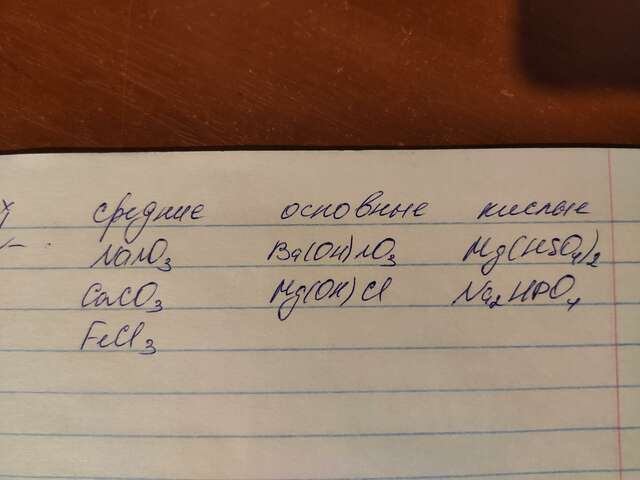 средние основные кислые
NaNO3 Ba(OH)NO3 Mg(HSO4)2
CaCO3 Mg(OH)Cl Na2HPO4
FeCl3